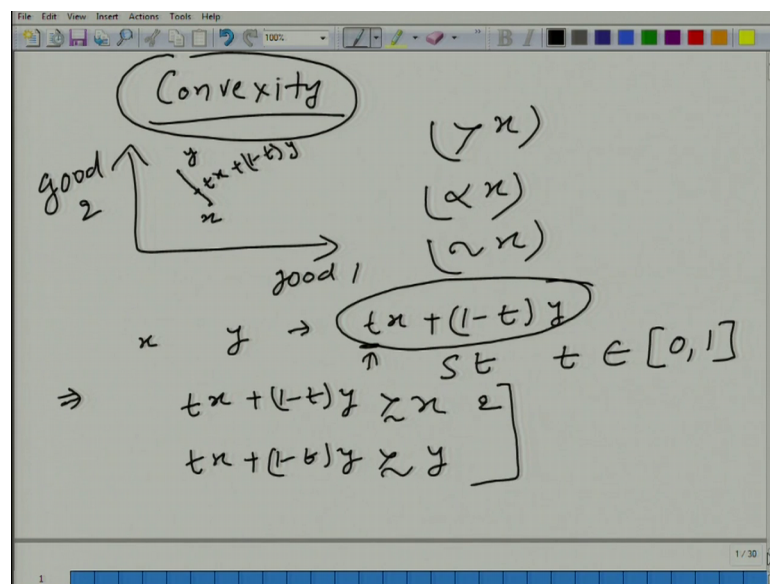 File Edit View Insert Actions Tools Help
100%
B I
Convexity
good 2
y
tx+(1-t)y
x
good 1
(≻x)
(∝x)
(~x)
x y → tx+(1-t)y
↑ St t ∈ [0,1]
⇒ tx+(1-t)y ≿ x 2
tx+(1-t)y ≿ y
1 / 30
1